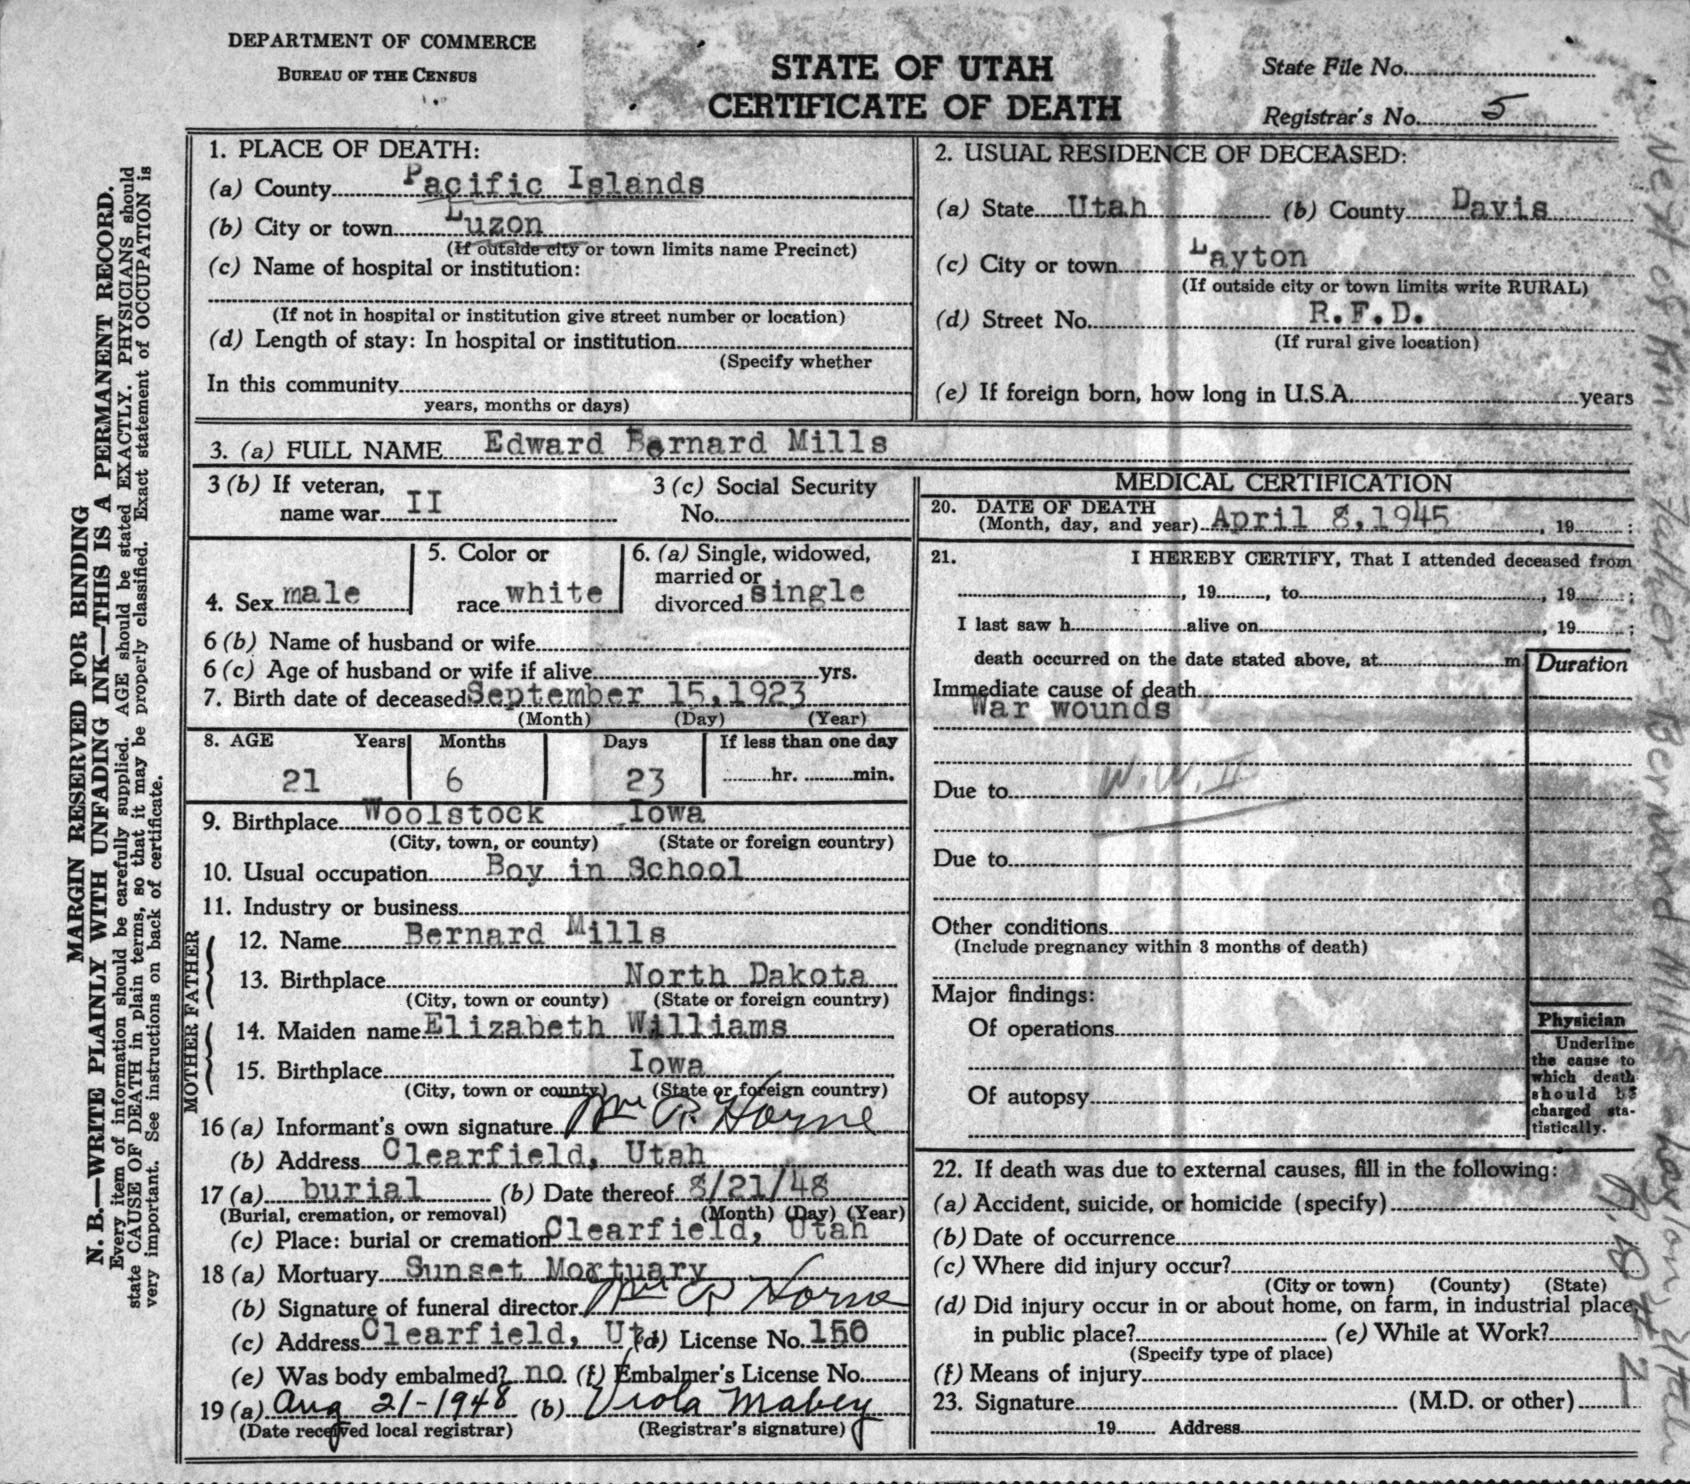 DEPARTMENT OF COMMERCE
BUREAU OF THE CENSUS
STATE OF UTAH
CERTIFICATE OF DEATH
State File No.
Registrar's No. 5
MARGIN RESERVED FOR BINDING
N. B.—WRITE PLAINLY WITH UNFADING INK—THIS IS A PERMANENT RECORD.
Every item of information should be carefully supplied. AGE should be stated EXACTLY. PHYSICIANS should
state CAUSE OF DEATH in plain terms, so that it may be properly classified. Exact statement of OCCUPATION is
very important. See instructions on back of certificate.
1. PLACE OF DEATH:
(a) County Pacific Islands
(b) City or town Luzon
(If outside city or town limits name Precinct)
(c) Name of hospital or institution:
(If not in hospital or institution give street number or location)
(d) Length of stay: In hospital or institution
(Specify whether
In this community
years, months or days)
2. USUAL RESIDENCE OF DECEASED:
(a) State Utah (b) County Davis
(c) City or town Layton
(If outside city or town limits write RURAL)
(d) Street No. R.F.D.
(If rural give location)
(e) If foreign born, how long in U.S.A. years
3. (a) FULL NAME Edward Bernard Mills
3 (b) If veteran,
name war II
3 (c) Social Security
No.
4. Sex male
5. Color or
race white
6. (a) Single, widowed,
married or
divorced single
6 (b) Name of husband or wife
6 (c) Age of husband or wife if alive yrs.
7. Birth date of deceased September 15,1923
(Month) (Day) (Year)
8. AGE Years Months Days If less than one day
21 6 23 hr. min.
9. Birthplace Woolstock Iowa
(City, town, or county) (State or foreign country)
10. Usual occupation Boy in School
11. Industry or business
FATHER
12. Name Bernard Mills
13. Birthplace North Dakota
(City, town or county) (State or foreign country)
MOTHER
14. Maiden name Elizabeth Williams
15. Birthplace Iowa
(City, town or county) (State or foreign country)
16 (a) Informant's own signature Wm P. Horne
(b) Address Clearfield, Utah
17 (a) burial (b) Date thereof 8/21/48
(Burial, cremation, or removal) (Month) (Day) (Year)
(c) Place: burial or cremation Clearfield, Utah
18 (a) Mortuary Sunset Mortuary
(b) Signature of funeral director Wm P Horne
(c) Address Clearfield, Ut. (d) License No. 150
(e) Was body embalmed? no. (f) Embalmer's License No.
19 (a) Aug 21-1948 (b) Viola Mabey
(Date received local registrar) (Registrar's signature)
MEDICAL CERTIFICATION
20. DATE OF DEATH
(Month, day, and year) April 8,1945, 19 ;
21. I HEREBY CERTIFY, That I attended deceased from
, 19 , to , 19 ;
I last saw h alive on , 19 ;
death occurred on the date stated above, at m.
Duration
Immediate cause of death
War wounds
Due to W.W. II
Due to
Other conditions
(Include pregnancy within 3 months of death)
Major findings:
Of operations
Of autopsy
Physician
Underline
the cause to
which death
should be
charged sta-
tistically.
22. If death was due to external causes, fill in the following:
(a) Accident, suicide, or homicide (specify)
(b) Date of occurrence
(c) Where did injury occur?
(City or town) (County) (State)
(d) Did injury occur in or about home, on farm, in industrial place,
in public place? (e) While at Work?
(Specify type of place)
(f) Means of injury
23. Signature (M.D. or other)
19 Address
Next of Kin: Father - Bernard Mills - Layton, Utah
R.D. # 2